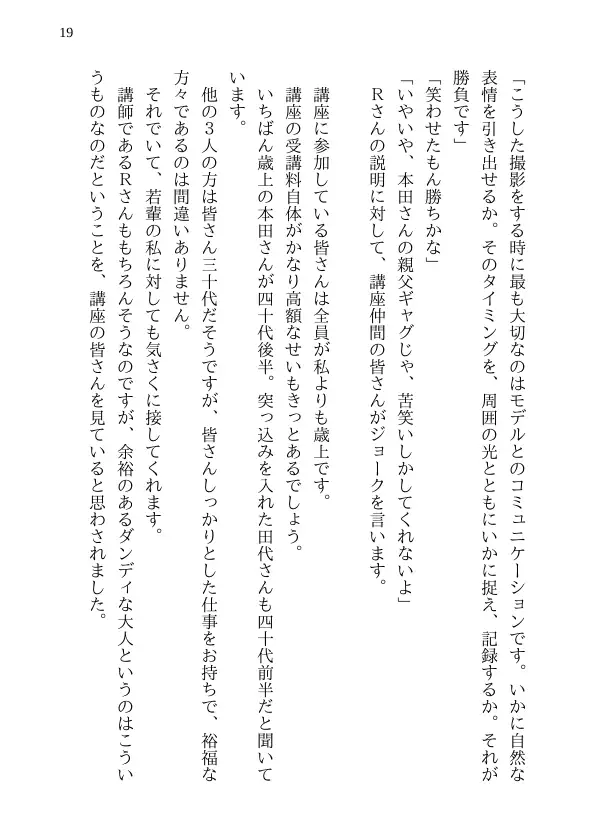 19
「こうした撮影をする時に最も大切なのはモデルとのコミュニケーションです。いかに自然な
表情を引き出せるか。そのタイミングを、周囲の光とともにいかに捉え、記録するか。それが
勝負です」
「笑わせたもん勝ちかな」
「いやいや、本田さんの親父ギャグじゃ、苦笑いしかしてくれないよ」
　Ｒさんの説明に対して、講座仲間の皆さんがジョークを言います。
　講座に参加している皆さんは全員が私よりも歳上です。
　講座の受講料自体がかなり高額なせいもきっとあるでしょう。
　いちばん歳上の本田さんが四十代後半。突っ込みを入れた田代さんも四十代前半だと聞いて
います。
　他の３人の方は皆さん三十代だそうですが、皆さんしっかりとした仕事をお持ちで、裕福な
方々であるのは間違いありません。
　それでいて、若輩の私に対しても気さくに接してくれます。
　講師であるＲさんももちろんそうなのですが、余裕のあるダンディな大人というのはこうい
うものなのだということを、講座の皆さんを見ていると思わされました。